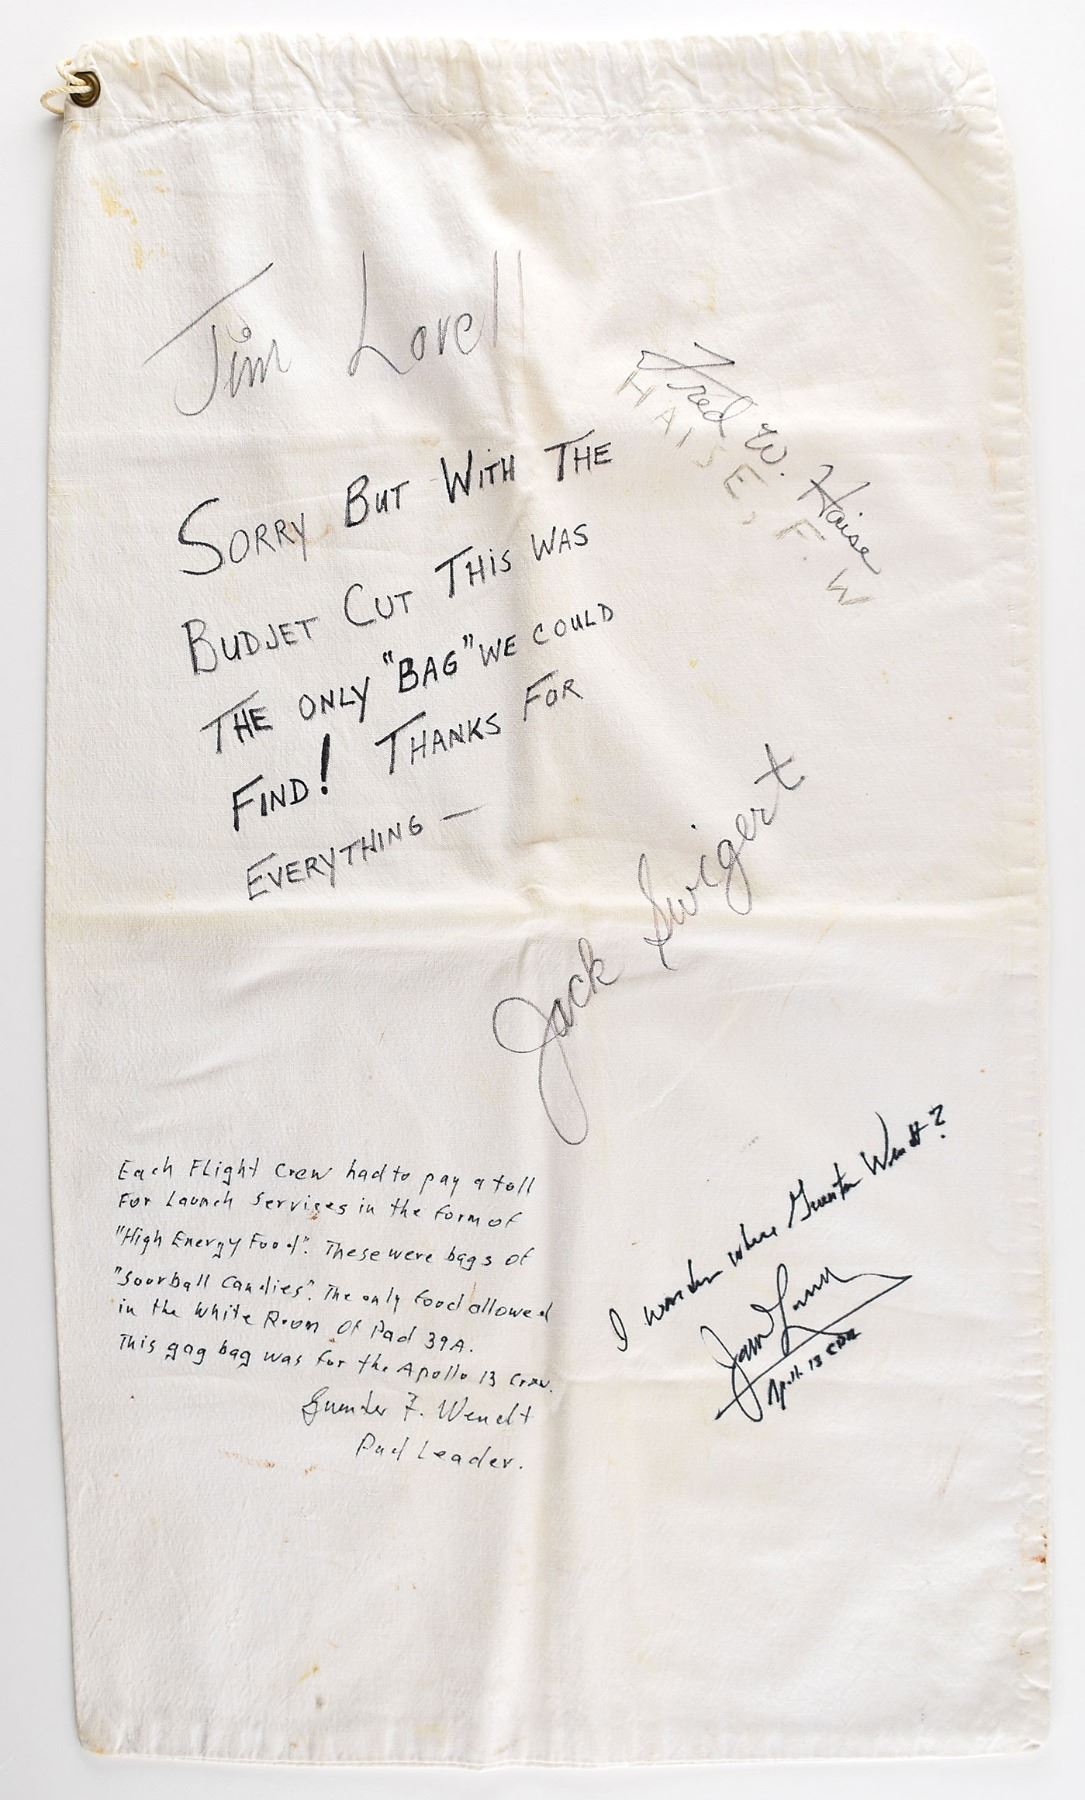 Jim Lovell
Fred W. Haise
HAISE, F. W
SORRY BUT WITH THE
BUDJET CUT THIS WAS
THE ONLY "BAG" WE COULD
FIND! THANKS FOR
EVERYTHING —
Jack Swigert
Each Flight Crew had to pay a toll
For Launch Services in the form of
"High Energy Food". These were bags of
"Sourball Candies". The only food allowed
in the White Room of Pad 39A.
This gag bag was for the Apollo 13 Crew.
Guenter F. Wendt
Pad Leader.
I wonder where Guenter Wendt?
James Lovell
Apollo 13 CDR